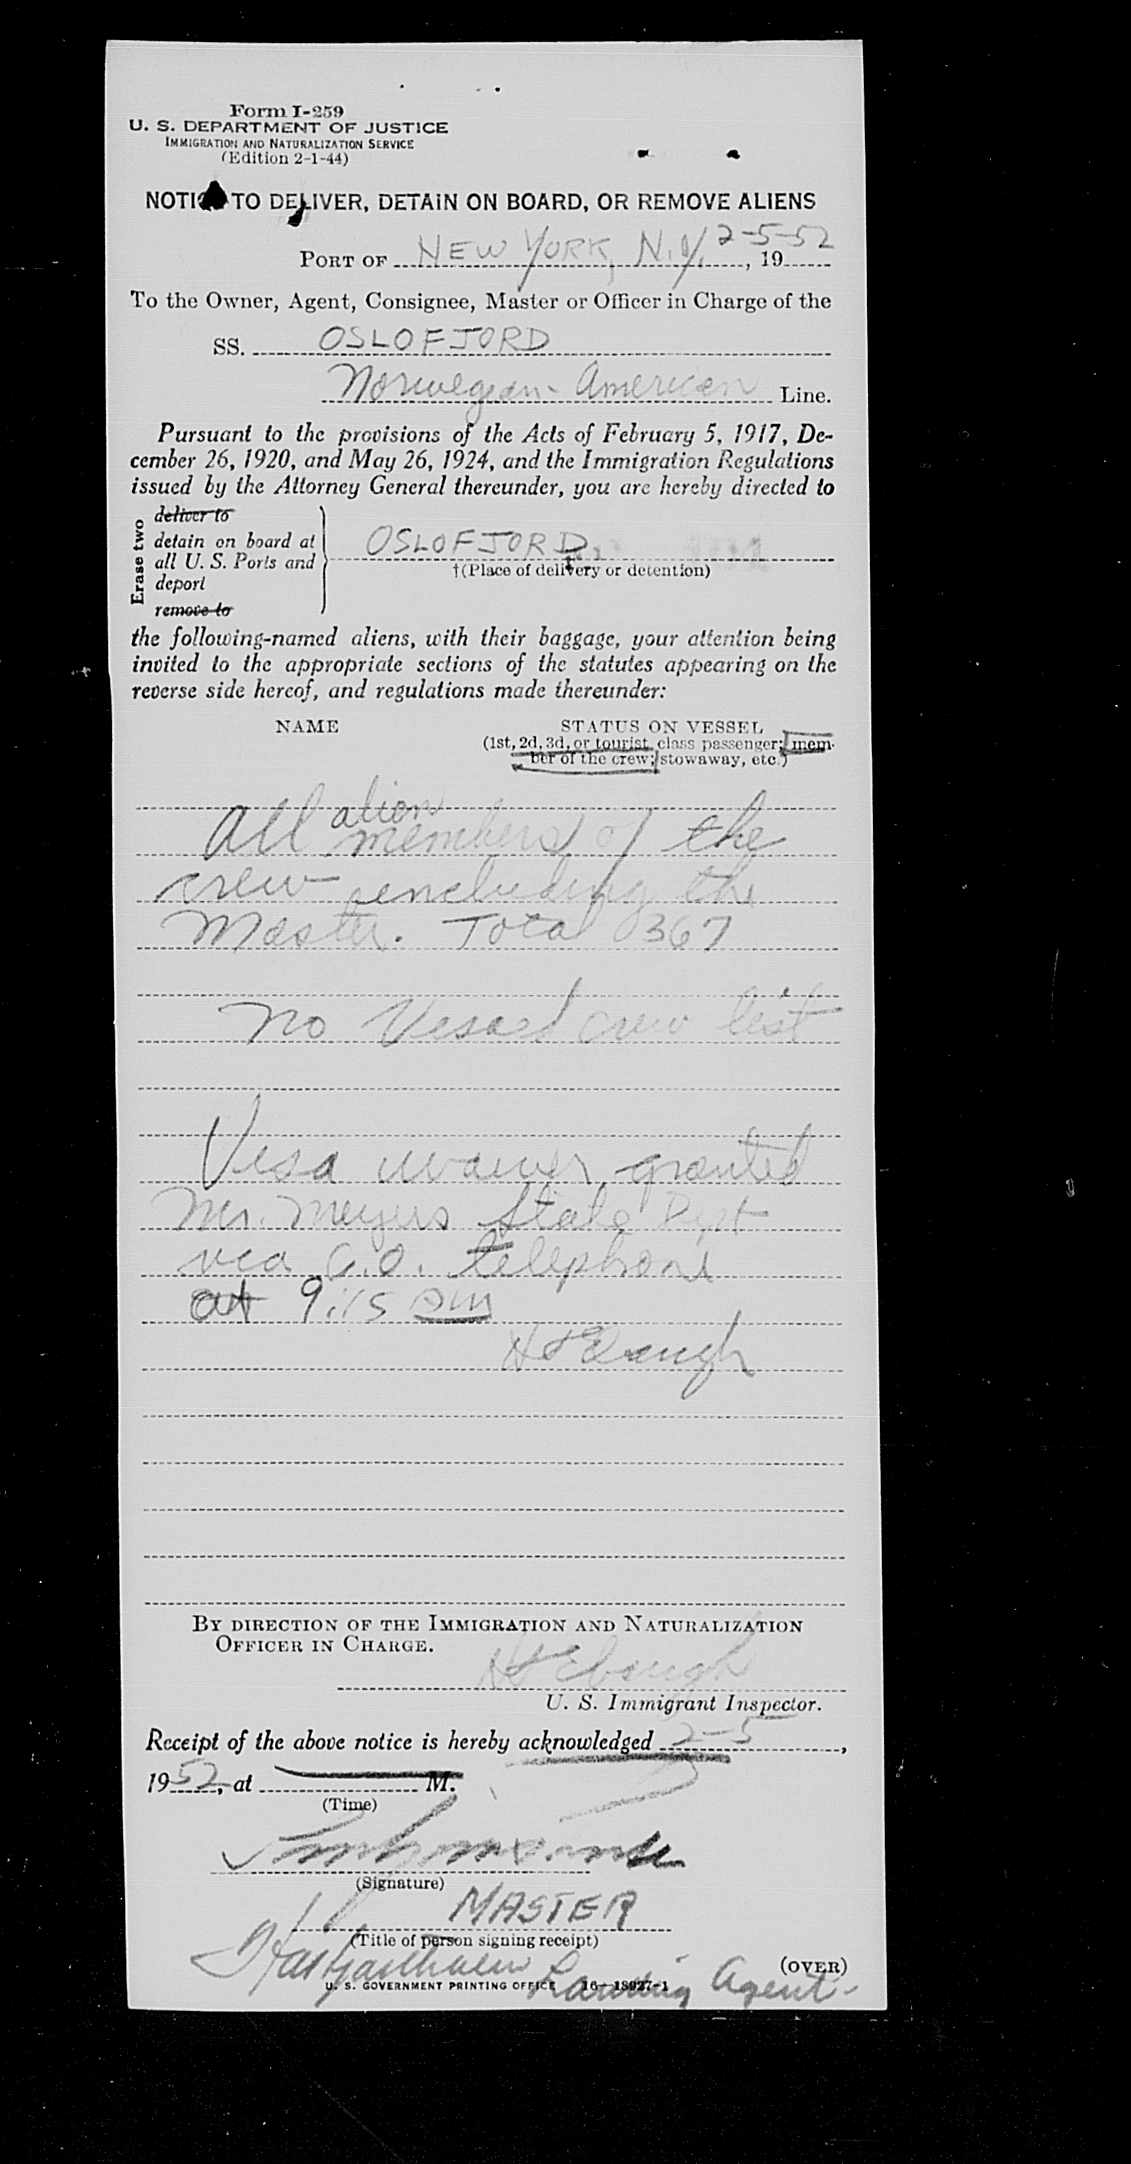 Form I-259
U. S. DEPARTMENT OF JUSTICE
IMMIGRATION AND NATURALIZATION SERVICE
(Edition 2-1-44)
NOTICE TO DELIVER, DETAIN ON BOARD, OR REMOVE ALIENS
PORT OF NEW YORK, N.Y. 2-5-52, 19
To the Owner, Agent, Consignee, Master or Officer in Charge of the
SS. OSLOFJORD
Norwegian-American Line.
Pursuant to the provisions of the Acts of February 5, 1917, De-
cember 26, 1920, and May 26, 1924, and the Immigration Regulations
issued by the Attorney General thereunder, you are hereby directed to
Erase two
deliver to
detain on board at
all U. S. Ports and
deport
remove to
OSLOFJORD
†(Place of delivery or detention)
the following-named aliens, with their baggage, your attention being
invited to the appropriate sections of the statutes appearing on the
reverse side hereof, and regulations made thereunder:
NAME STATUS ON VESSEL
(1st, 2d, 3d, or tourist class passenger; mem-
ber of the crew; stowaway, etc.)
alien
All members of the
crew including the
Master. Total 367
No Visaed crew list
Visa waiver granted
Mr. Meyers State Dept
via C.O. telephone
at 9:15 am
By direction of the Immigration and Naturalization
Officer in Charge.
U. S. Immigrant Inspector.
Receipt of the above notice is hereby acknowledged 2-5,
1952, at M.
(Time)
(Signature)
MASTER
(Title of person signing receipt)
(OVER)
Landing Agent.
U. S. GOVERNMENT PRINTING OFFICE 16-18927-1